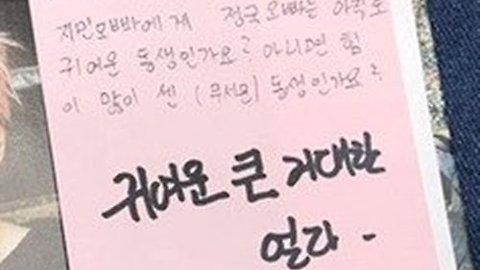 지민오빠에게 정국오빠는 아직도
귀여운 동생인가요? 아니면 힘
이 많이 센 (무서운) 동생인가요?
귀여운 큰 거대한
얼라.